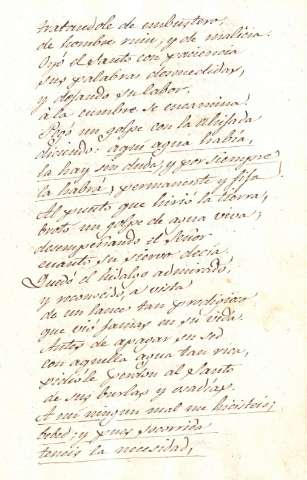 tratandole de embustero,
de hombre ruin, y de malicia.
Oyó el Santo con paciencia
sus palabras desmedidas,
y dejando su labor,
á la cumbre se encamina.
Dió un golpe con la ahijada
diciendo: aquí agua había,
la hay sin duda, y por siempre
la habrá, permanente y fija.
Al punto que hirió la tierra,
brotó un golpe de agua viva,
desempeñando el Señor
cuanto su siervo decía.
Quedó el hidalgo admirado,
y reconocido, á vista
de un lance tan prodigioso
que vió jamas en su vida.
Antes de apagar su sed
con aquella agua tan rica,
pidiole perdon al Santo
de sus burlas y osadías.
A mi ningun mal me hicisteis;
bebed; y pues socorrida
teneis la necesidad,